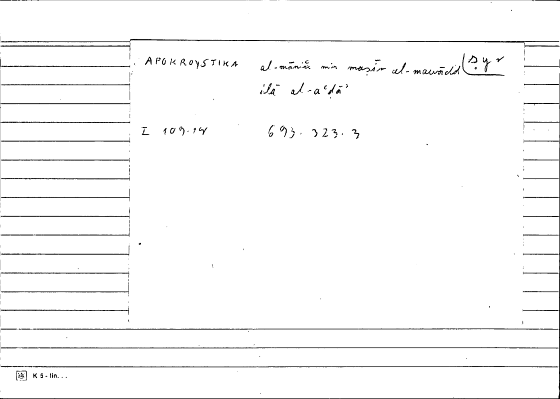 APOKROYSTIKA al-māniʿ min maṣīr al-mawādd ṣyr
ilā al-aʿḍāʾ
I 109.14 693.323.3
K 5 - lin...